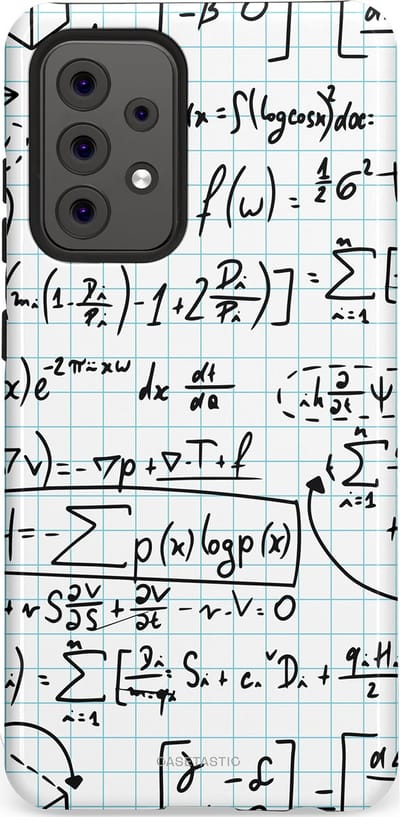 -β 0
dx = ∫(logcosx)²dx:
f(w) = 1/2 6² +
(m_i(1-D_i/P_i)-1+2D_i/P_i)] = n∑i=1 [
x)e^-2πixw dx dt/dQ iħ ∂/∂t Ψ
∇v)=-∇p+∇·T+f
n∑i=1
H=-∑p(x)logp(x)
+ rS ∂V/∂S + ∂V/∂t - r·V=0
) = n∑i=1 [D_i/m·q_i S_i + c_i D_i + q_iH_i/2
CASETASTIC
[γ -δ] = [